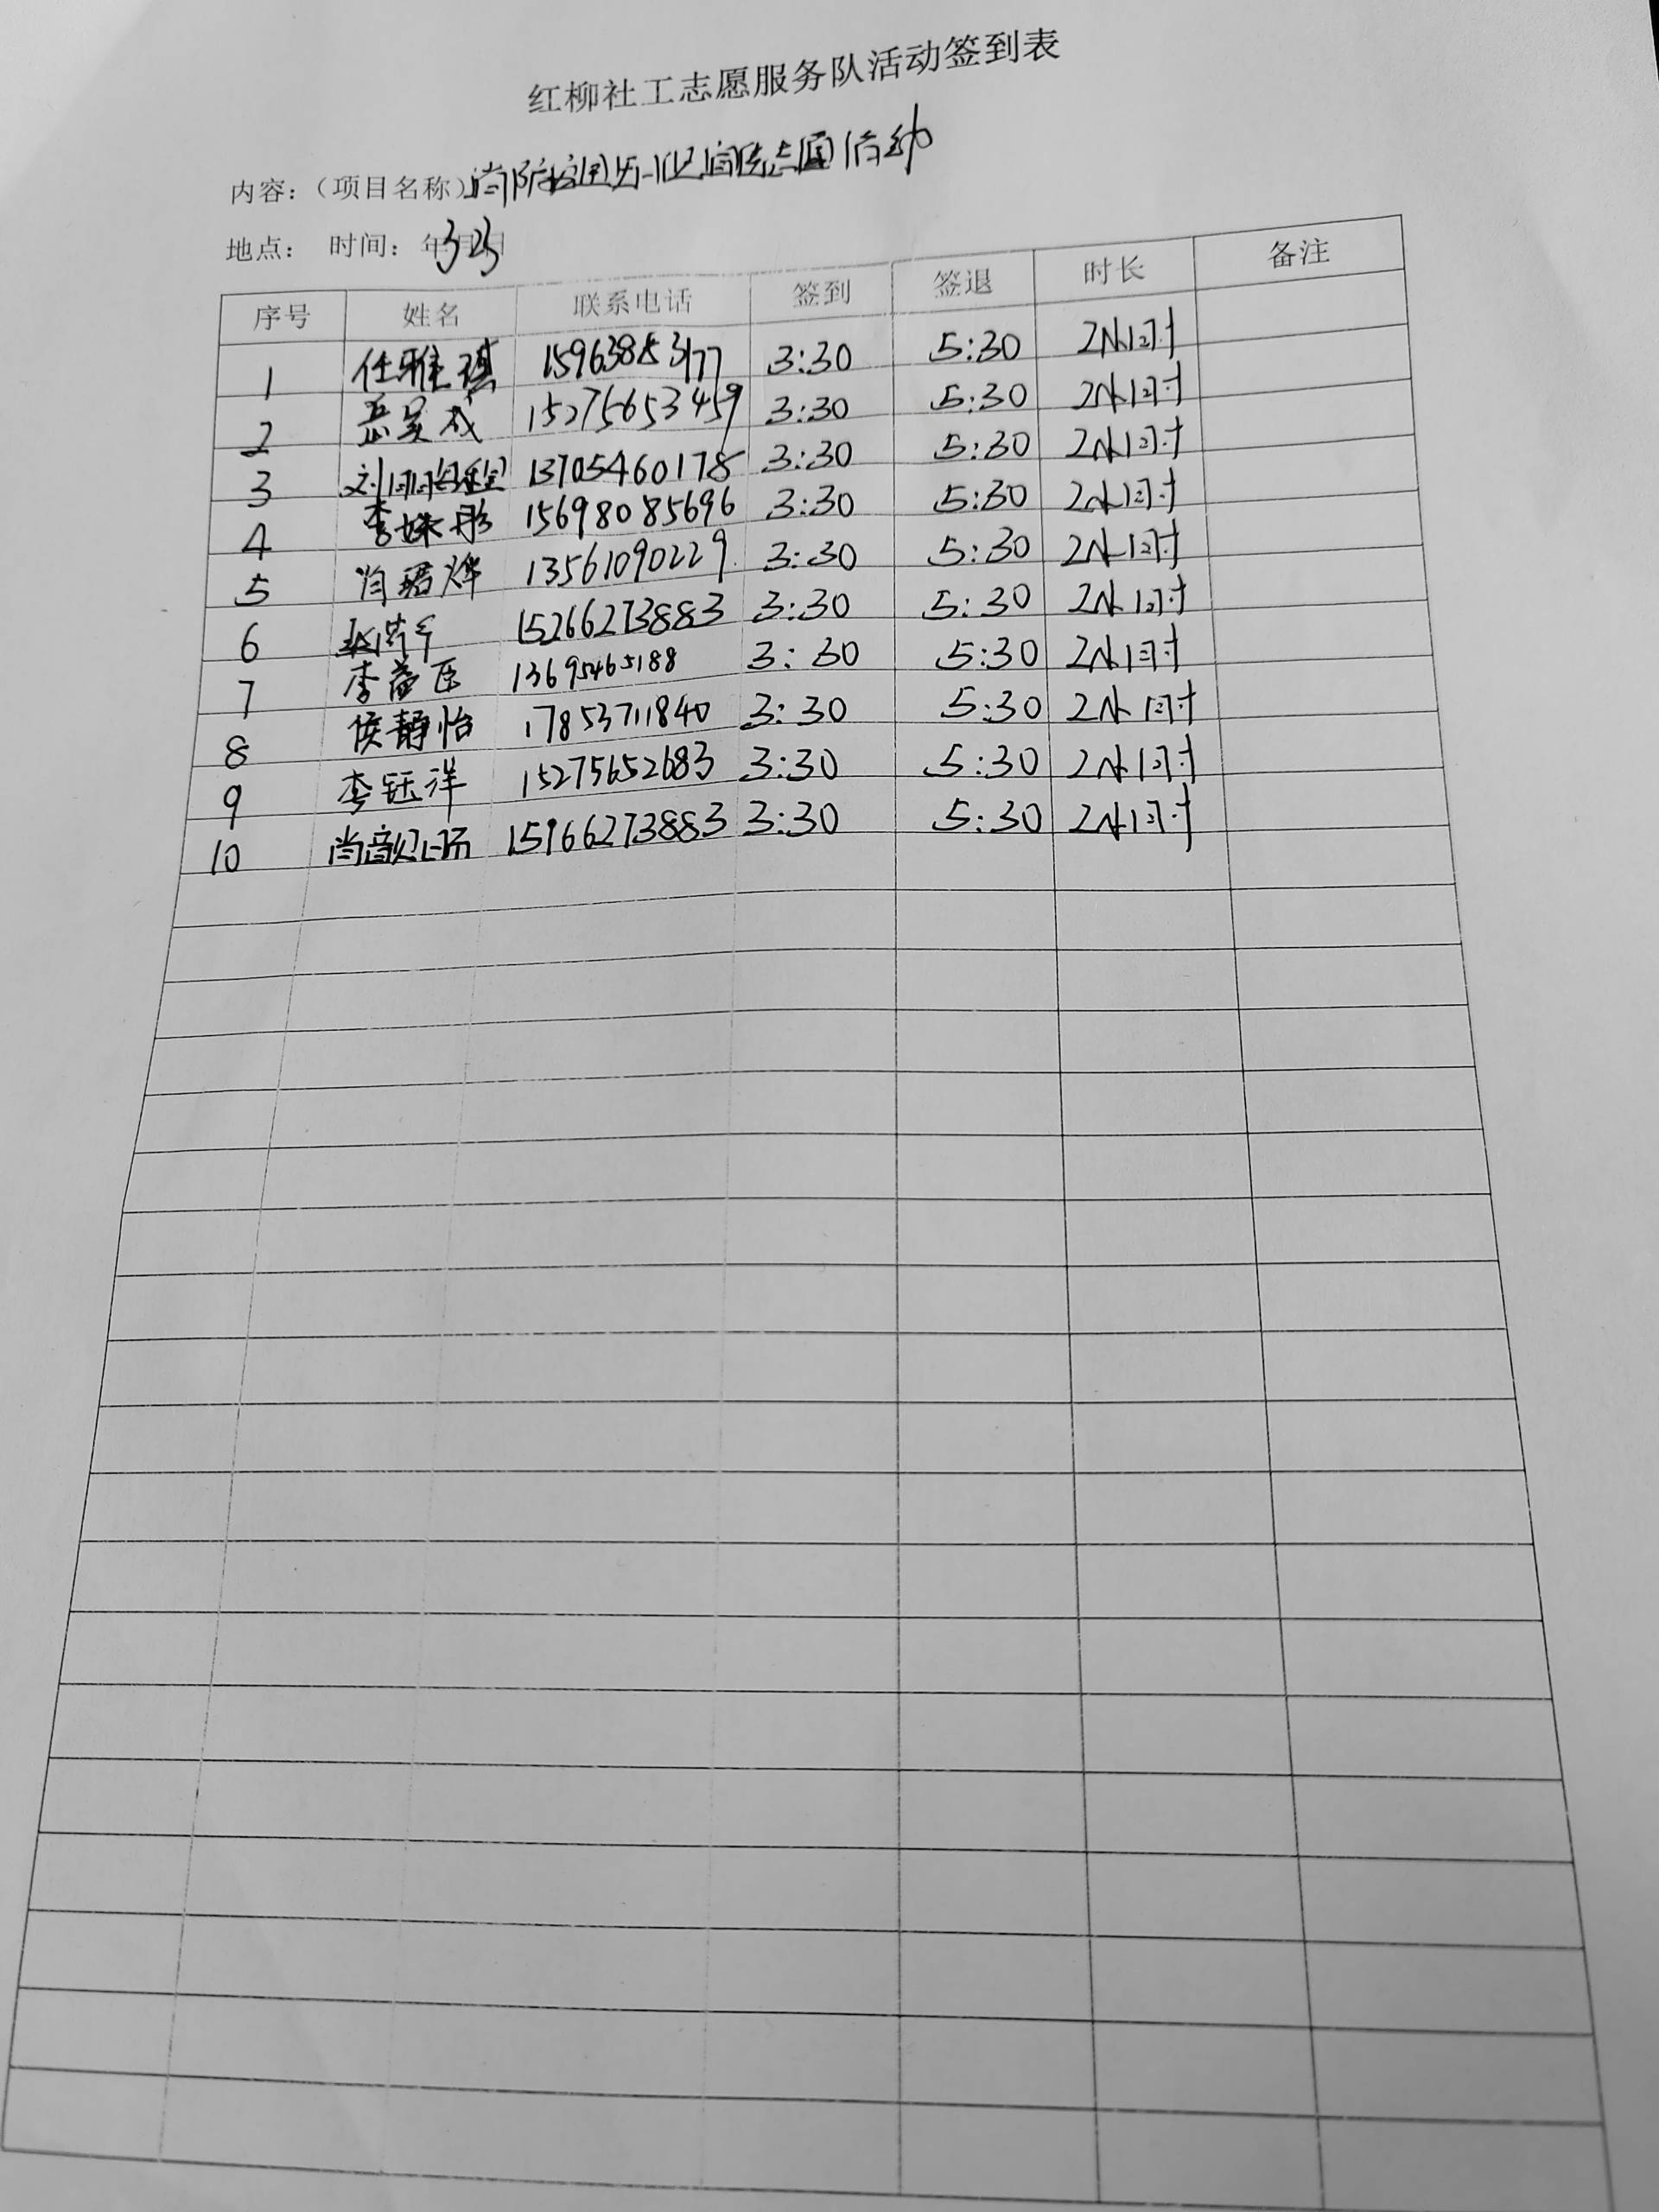 红柳社工志愿服务队活动签到表
内容：（项目名称）消防 宣传志愿活动
地点： 时间： 年 3.25
序号 姓名 联系电话 签到 签退 时长 备注
1 任雅琪 15963853177 3:30 5:30 2小时
2 15275653459 3:30 5:30 2小时
3 刘 13705460178 3:30 5:30 2小时
4 李姝彤 15698085696 3:30 5:30 2小时
5 肖珺烨 13561090229 3:30 5:30 2小时
6 15266273883 3:30 5:30 2小时
7 李 13695465188 3:30 5:30 2小时
8 侯静怡 17853711840 3:30 5:30 2小时
9 李钰洋 15275652683 3:30 5:30 2小时
10 尚 15966273883 3:30 5:30 2小时